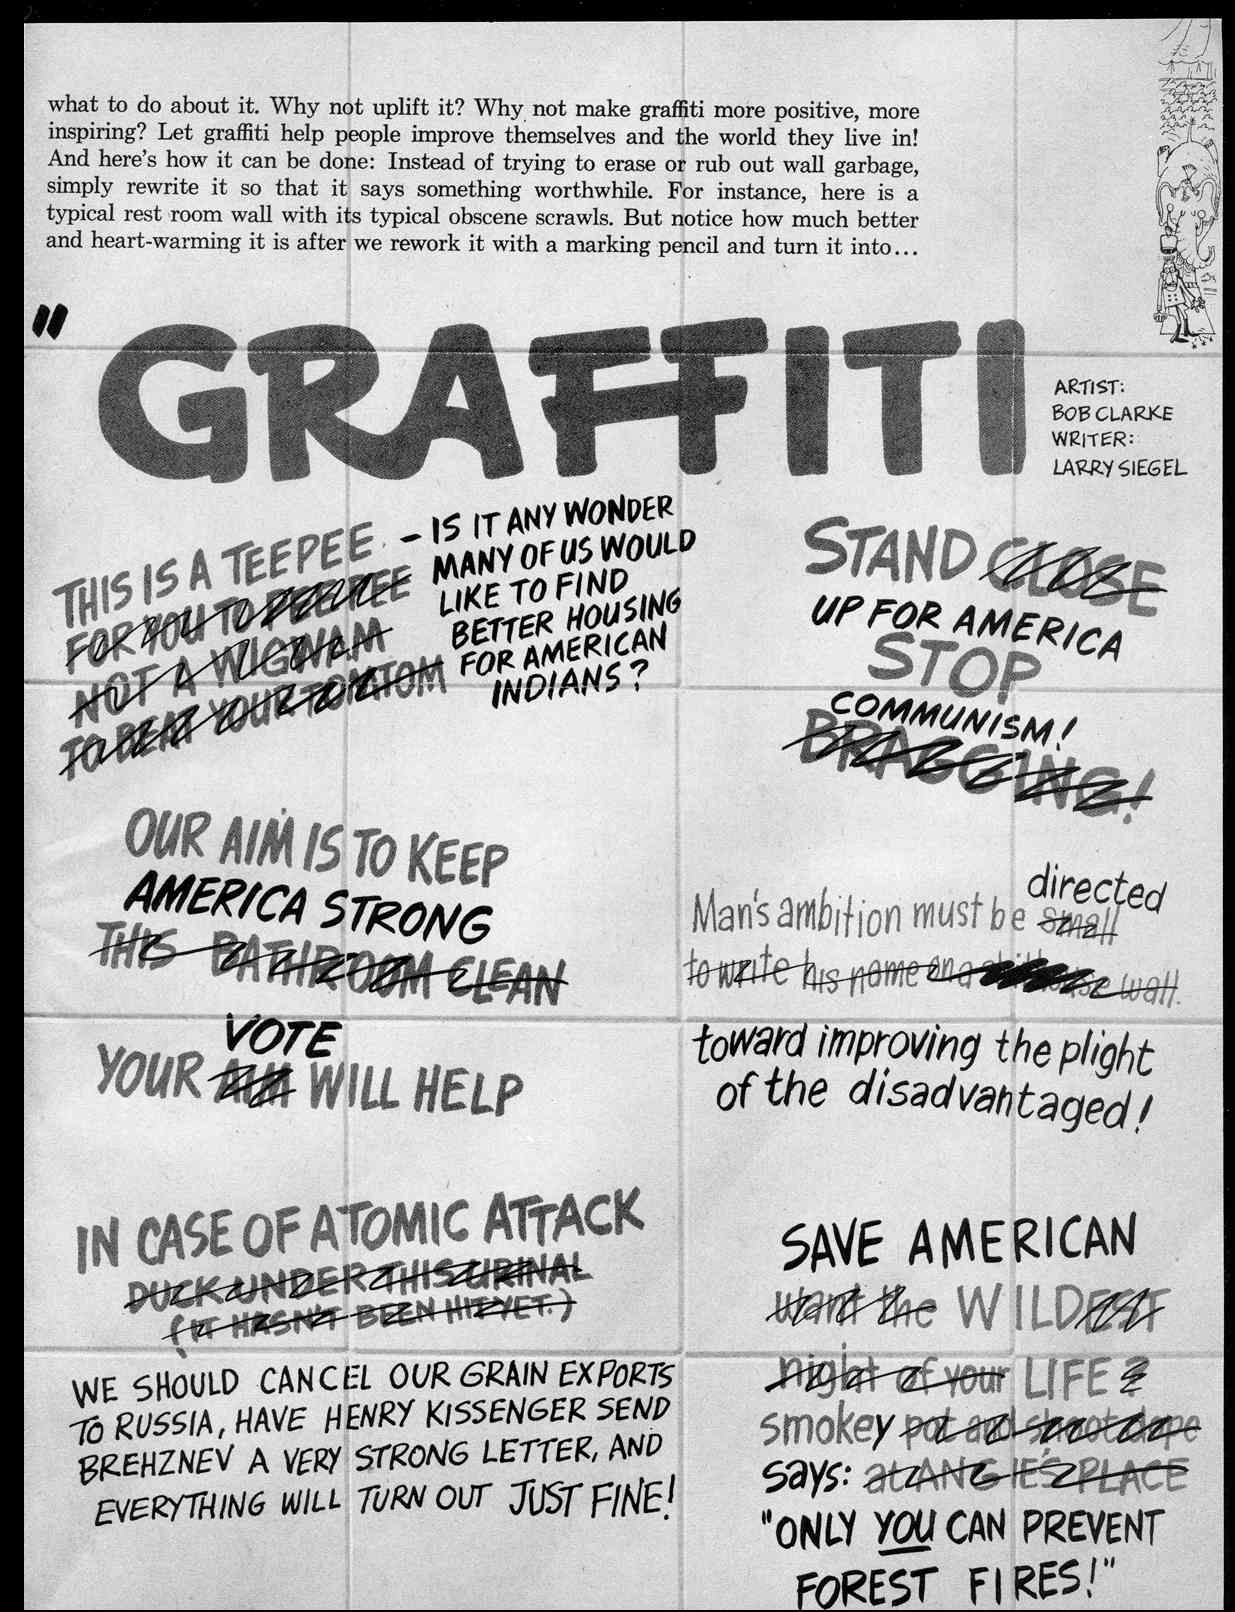 what to do about it. Why not uplift it? Why not make graffiti more positive, more
inspiring? Let graffiti help people improve themselves and the world they live in!
And here's how it can be done: Instead of trying to erase or rub out wall garbage,
simply rewrite it so that it says something worthwhile. For instance, here is a
typical rest room wall with its typical obscene scrawls. But notice how much better
and heart-warming it is after we rework it with a marking pencil and turn it into...
"GRAFFITI
ARTIST:
BOB CLARKE
WRITER:
LARRY SIEGEL
THIS IS A TEEPEE
FOR YOU TO PEEPEE
NOT A WIGWAM
TO BEAT YOUR TOMTOM
- IS IT ANY WONDER
MANY OF US WOULD
LIKE TO FIND
BETTER HOUSING
FOR AMERICAN
INDIANS?
STAND CLOSE
UP FOR AMERICA
STOP
COMMUNISM!
BRAGGING!
OUR AIM IS TO KEEP
AMERICA STRONG
THIS BATHROOM CLEAN
VOTE
YOUR AIM WILL HELP
directed
Man's ambition must be small
to write his name on a wall.
toward improving the plight
of the disadvantaged!
IN CASE OF ATOMIC ATTACK
DUCK UNDER THIS URINAL
(IT HASN'T BEEN HIT YET.)
WE SHOULD CANCEL OUR GRAIN EXPORTS
TO RUSSIA, HAVE HENRY KISSENGER SEND
BREHZNEV A VERY STRONG LETTER, AND
EVERYTHING WILL TURN OUT JUST FINE!
SAVE AMERICAN
want the WILDEST
night of your LIFE?
smokey pot and shoot dope
says: at ANGIE'S PLACE
"ONLY YOU CAN PREVENT
FOREST FIRES!"